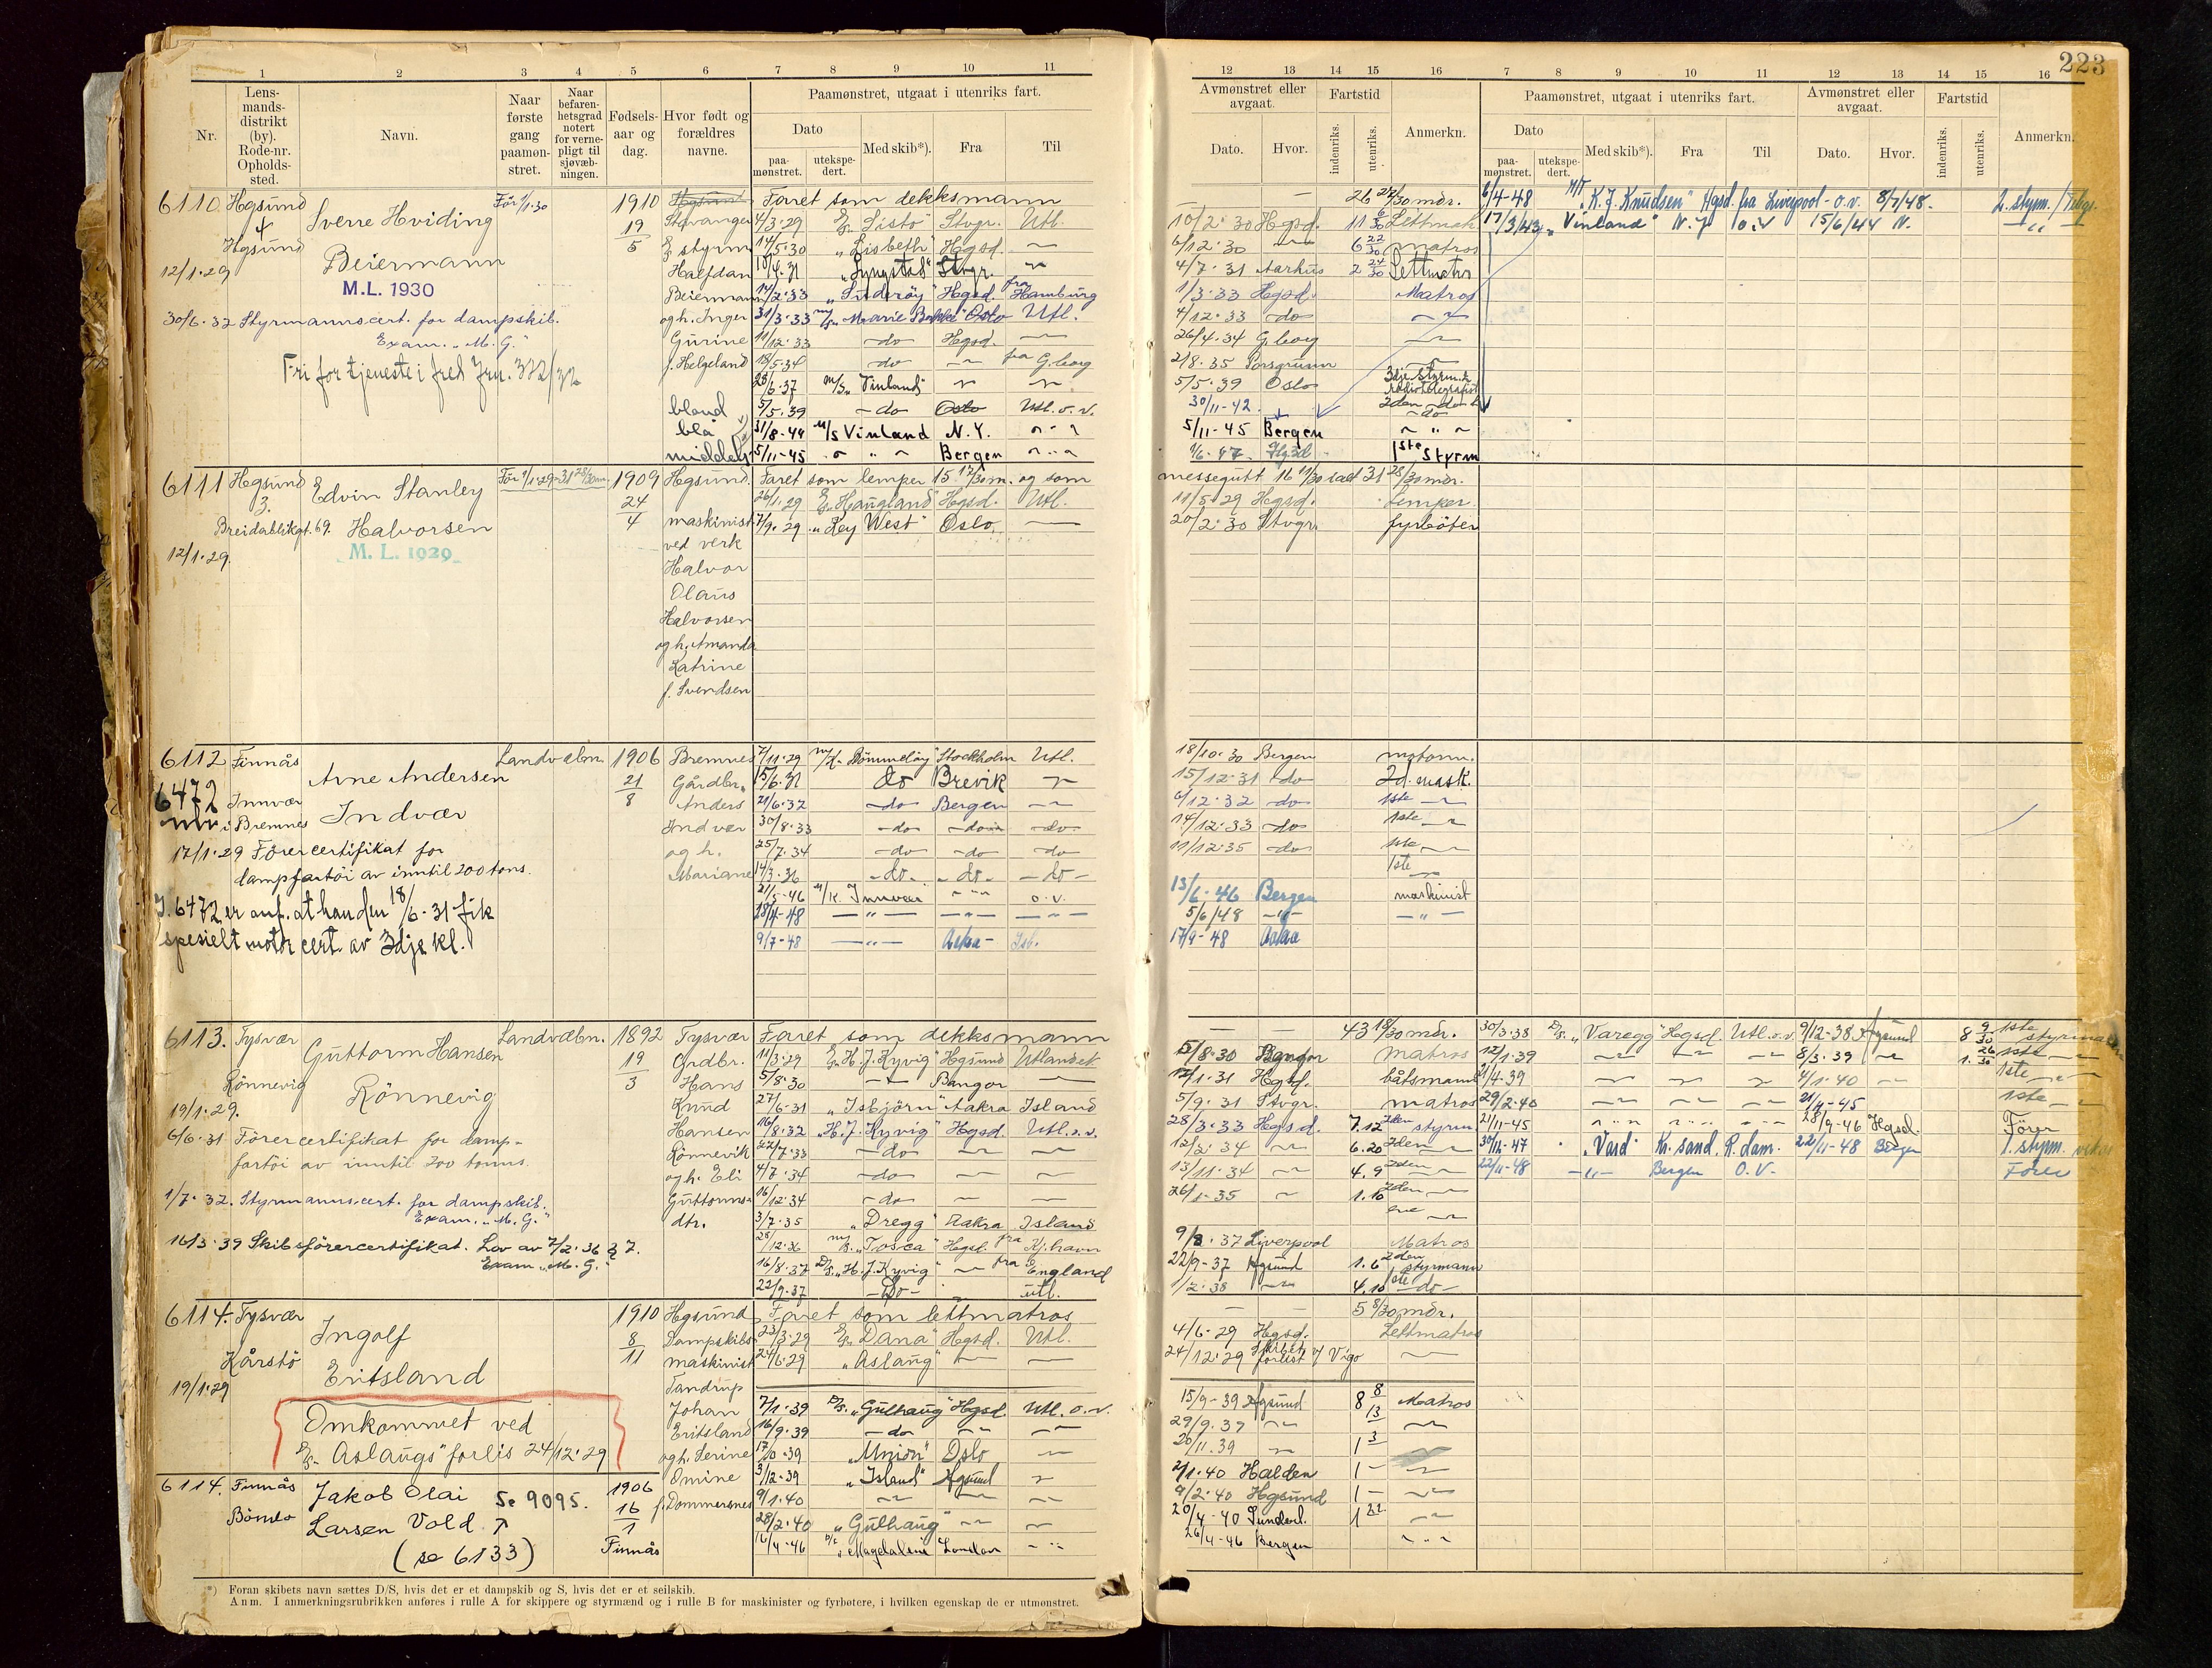 223
1 2 3 4 5 6 7 8 9 10 11
Nr.
Lens-
mands-
distrikt
(by).
Rode-nr.
Opholds-
sted.
Navn.
Naar
første
gang
paamøn-
stret.
Naar
befaren-
hetsgrad
notert
for verne-
pligt til
sjøvæb-
ningen.
Fødsels-
aar og
dag.
Hvor født og
forældres
navne.
Paamønstret, utgaat i utenriks fart.
Dato
paa-
mønstret.
utekspe-
dert.
Med skib*).
Fra
Til
12 13 14 15 16 7 8 9 10 11 12 13 14 15 16
Avmønstret eller
avgaat.
Dato.
Hvor.
Fartstid
indenriks.
utenriks.
Anmerkn.
Paamønstret, utgaat i utenriks fart.
Dato
paa-
mønstret.
utekspe-
dert.
Med skib*).
Fra
Til
Avmønstret eller
avgaat.
Dato.
Hvor.
Fartstid
indenriks.
utenriks.
Anmerkn.
6110. Hgsund
4
Hgsund
12/1·29
Sverre Hviding
Beiermann
M.L. 1930
30/6·32 Styrmannscert. for dampskib.
Exam. „M.G."
Fri for tjeneste i fred Jrn. 372/32
Før 1/1·30
1910
19
5
Hgsund
Stavanger
styrm
Halfdan
Beiermann
og h. Inger
Gurine
f. Helgeland
blond
blå
middels
Faret som dekksmann
4/3·29 „Listo" Stvgr. Utl.
14/5·30 „Lisbeth" Hgsd.
10/4·31 „Lyngstad" Stvgr.
14/2·33 „Suderøy" Hgsd. fra Hamburg
31/3·33 „Marie Bakke" Oslo Utl.
11/12·33 do Hgsd.
18/5·34 do fra G.borg
28/6·37 M/S „Vinland"
5/5·39 do Oslo Utl. o.v.
31/8·44 M/S Vinland N.Y.
5/11-45 Bergen
26 27/30 mdr.
10/2·30 Hgsd. 11 6/30 Lettmatr
6/12·30 6 22/30 matros
4/7·31 Aarhus 2 24/30 Lettmatr
1/3·33 Hgsd. Matros
4/12·33 do
26/4·34 G.borg
2/8·35 Porsgrunn
5/5·39 Oslo 3dje Styrm. &
radiotelegrafist
30/11-42. 2den do
5/11-45 Bergen
1/6-47 Hgsd 1ste Styrm
6/4-48 M/T „K. J. Knudsen" Hgsd. fra Liverpool - o.v. 8/7/48. 2. styrm./Telegr.
17/3/43 „Vinland" N.Y o.v 15/6/44 N.
6111 Hgsund
3.
Breidablikgt. 69.
12/1·29.
Edvin Stanley
Halvorsen
M. L. 1929
Før 1/1·29-31 28/30 m.
1909
24
4
Hgsund.
maskinist
ved verk
Halvor
Olaus
Halvorsen
og h. Amanda
Katrine
f. Svendsen
Faret som lemper 15 17/30 m. og som
messegutt 16 11/30 ialt 31 28/30 mdr.
26/1·29 „Haugland" Hgsd. Utl.
7/9·29 „Key West" Oslo
11/5·29 Hgsd. Lemper.
20/2·30 Stvgr. fyrbøter
6112 Finnås
6472
Innvær
i Bremnes
Arne Andersen
Indvær
17/1·29 Førercertifikat for
dampfartøi av inntil 200 tons.
I. 6472 er anf. at han den 18/6-31 fik
spesielt motorcert. av 3dje kl.
Landvæbn.
1906
21
8
Bremnes
Gårdbr.
Anders
Indvær
og h.
Mariane
7/11·29 „Bømmeløy" Stockholm Utl.
15/6·31 do Brevik
21/6·32 do Bergen
30/8·33 do do do
25/7·34 do do do
14/3·36 do do do
21/5-46 M/K. Innvær o.v.
28/4-48
9/7-48 Askø
18/10·30 Bergen motorm.
15/12·31 do 2d. mask.
6/12·32 do 1ste
14/12·33 do 1ste
11/12·35 do 1ste
1ste
13/6-46 Bergen maskinist
5/6/48
17/9-48
6113. Tysvær
Rønnevig
19/1·29.
Guttorm Hansen
Rønnevig
6/6·31 Førercertifikat for damp-
fartøi av inntil 200 tonns.
1/7·32. Styrmannscert. for dampskib.
Exam. „M.G."
16/3·39 Skibsførercertifikat. Lov av 7/2·36 § 7.
Exam „M.G."
Landvæbn.
1892
19
3
Tysvær
Grdbr.
Hans
Knud
Hansen
Rønnevik
og h. Eli
Guttorms-
dtr.
Faret som dekksmann
11/3·29 „H. J. Kyvig" Hgsund Utlandet
5/8·30 Bangor
27/6·31 „Isbjørn" Aakra Island
16/8·32 „H. J. Kyvig" Hgsd. Utl. o.v.
27/7·33 do
4/7·34 do
16/12·34 do
3/7·35 „Dregg" Aakra Island
28/12·36 „Tosca" Hgsd. fra Kj.havn
16/8·37 D/S. „H. J. Kyvig" fra England
22/9·37 Do utl.
43 18/30 mdr.
5/8·30 Bangor matros
12/1·31 Hgsd. båtsmann
5/9·31 Stvgr. matros
28/3·33 Hgsd. 7.12 2den styrm.
12/2·34 6.20 2den
13/11·34 4.9 2den
26/1-35 1.10 2den
9/8·37 Liverpool Matros
22/9-37 Hgsund 1.6 2den styrmann
1/2·38 4.10 1ste do
30/3·38 D/S. „Varegg" Hgsd. Utl. o.v. 9/12-38 Hgsund 8 9/30 1ste styrmann
12/1·39 8/3·39 1. 26/30 1ste
21/4·39 4/1·40 1ste
29/2·40 21/11-45 1ste
21/11-45 28/9-46 Hgsd. Fører
30/12-47 „Vard" Kr.sand. R.dam. 22/11-48 Bergen 1. styrm.
22/11-48 Bergen O.V. Fører
6114. Tysvær
Kårstø
19/1·29
Ingolf
Eritsland
Omkommet ved
„Aslaugs" forlis 24/12·29
1910
8
11
Hgsund
Dampskibs-
maskinist
Tandrup
Johan
Eritsland
og h. Serine
Omine
f. Dommersnes
Faret som lettmatros
23/3·29 „Dana" Hgsd. Utl.
24/6·29 „Aslaug"
7/1·39 D/S. „Gulhaug" Hgsd. Utl. o.v.
16/9·39 do
17/10·39 „Union" Oslo
3/12·39 „Island" Hgsund
9/1·40
28/2·40 „Gulhaug"
16/4-46 „Magdalene London
5 8/30 mdr.
4/6·29 Hgsd. Lettmatros
24/12·29 forlist v/ Vigo
15/9-39 Hgsund 8 8/13 Matros
29/9.39
20/11.39 1 3
2/1·40 Halden 1
9/2·40 Hgsund 1
20/4-40 Sunderl. 1 22
26/4-46 Bergen
6114. Finnås
Bømlo
Jakob Olai Se 9095.
Larsen Vold
(se 6133)
1906
16
1
Finnås
*) Foran skibets navn sættes D/S, hvis det er et dampskib og S, hvis det er et seilskib.
Anm. I anmerkningsrubrikken anføres i rulle A for skippere og styrmænd og i rulle B for maskinister og fyrbøtere, i hvilken egenskap de er utmønstret.